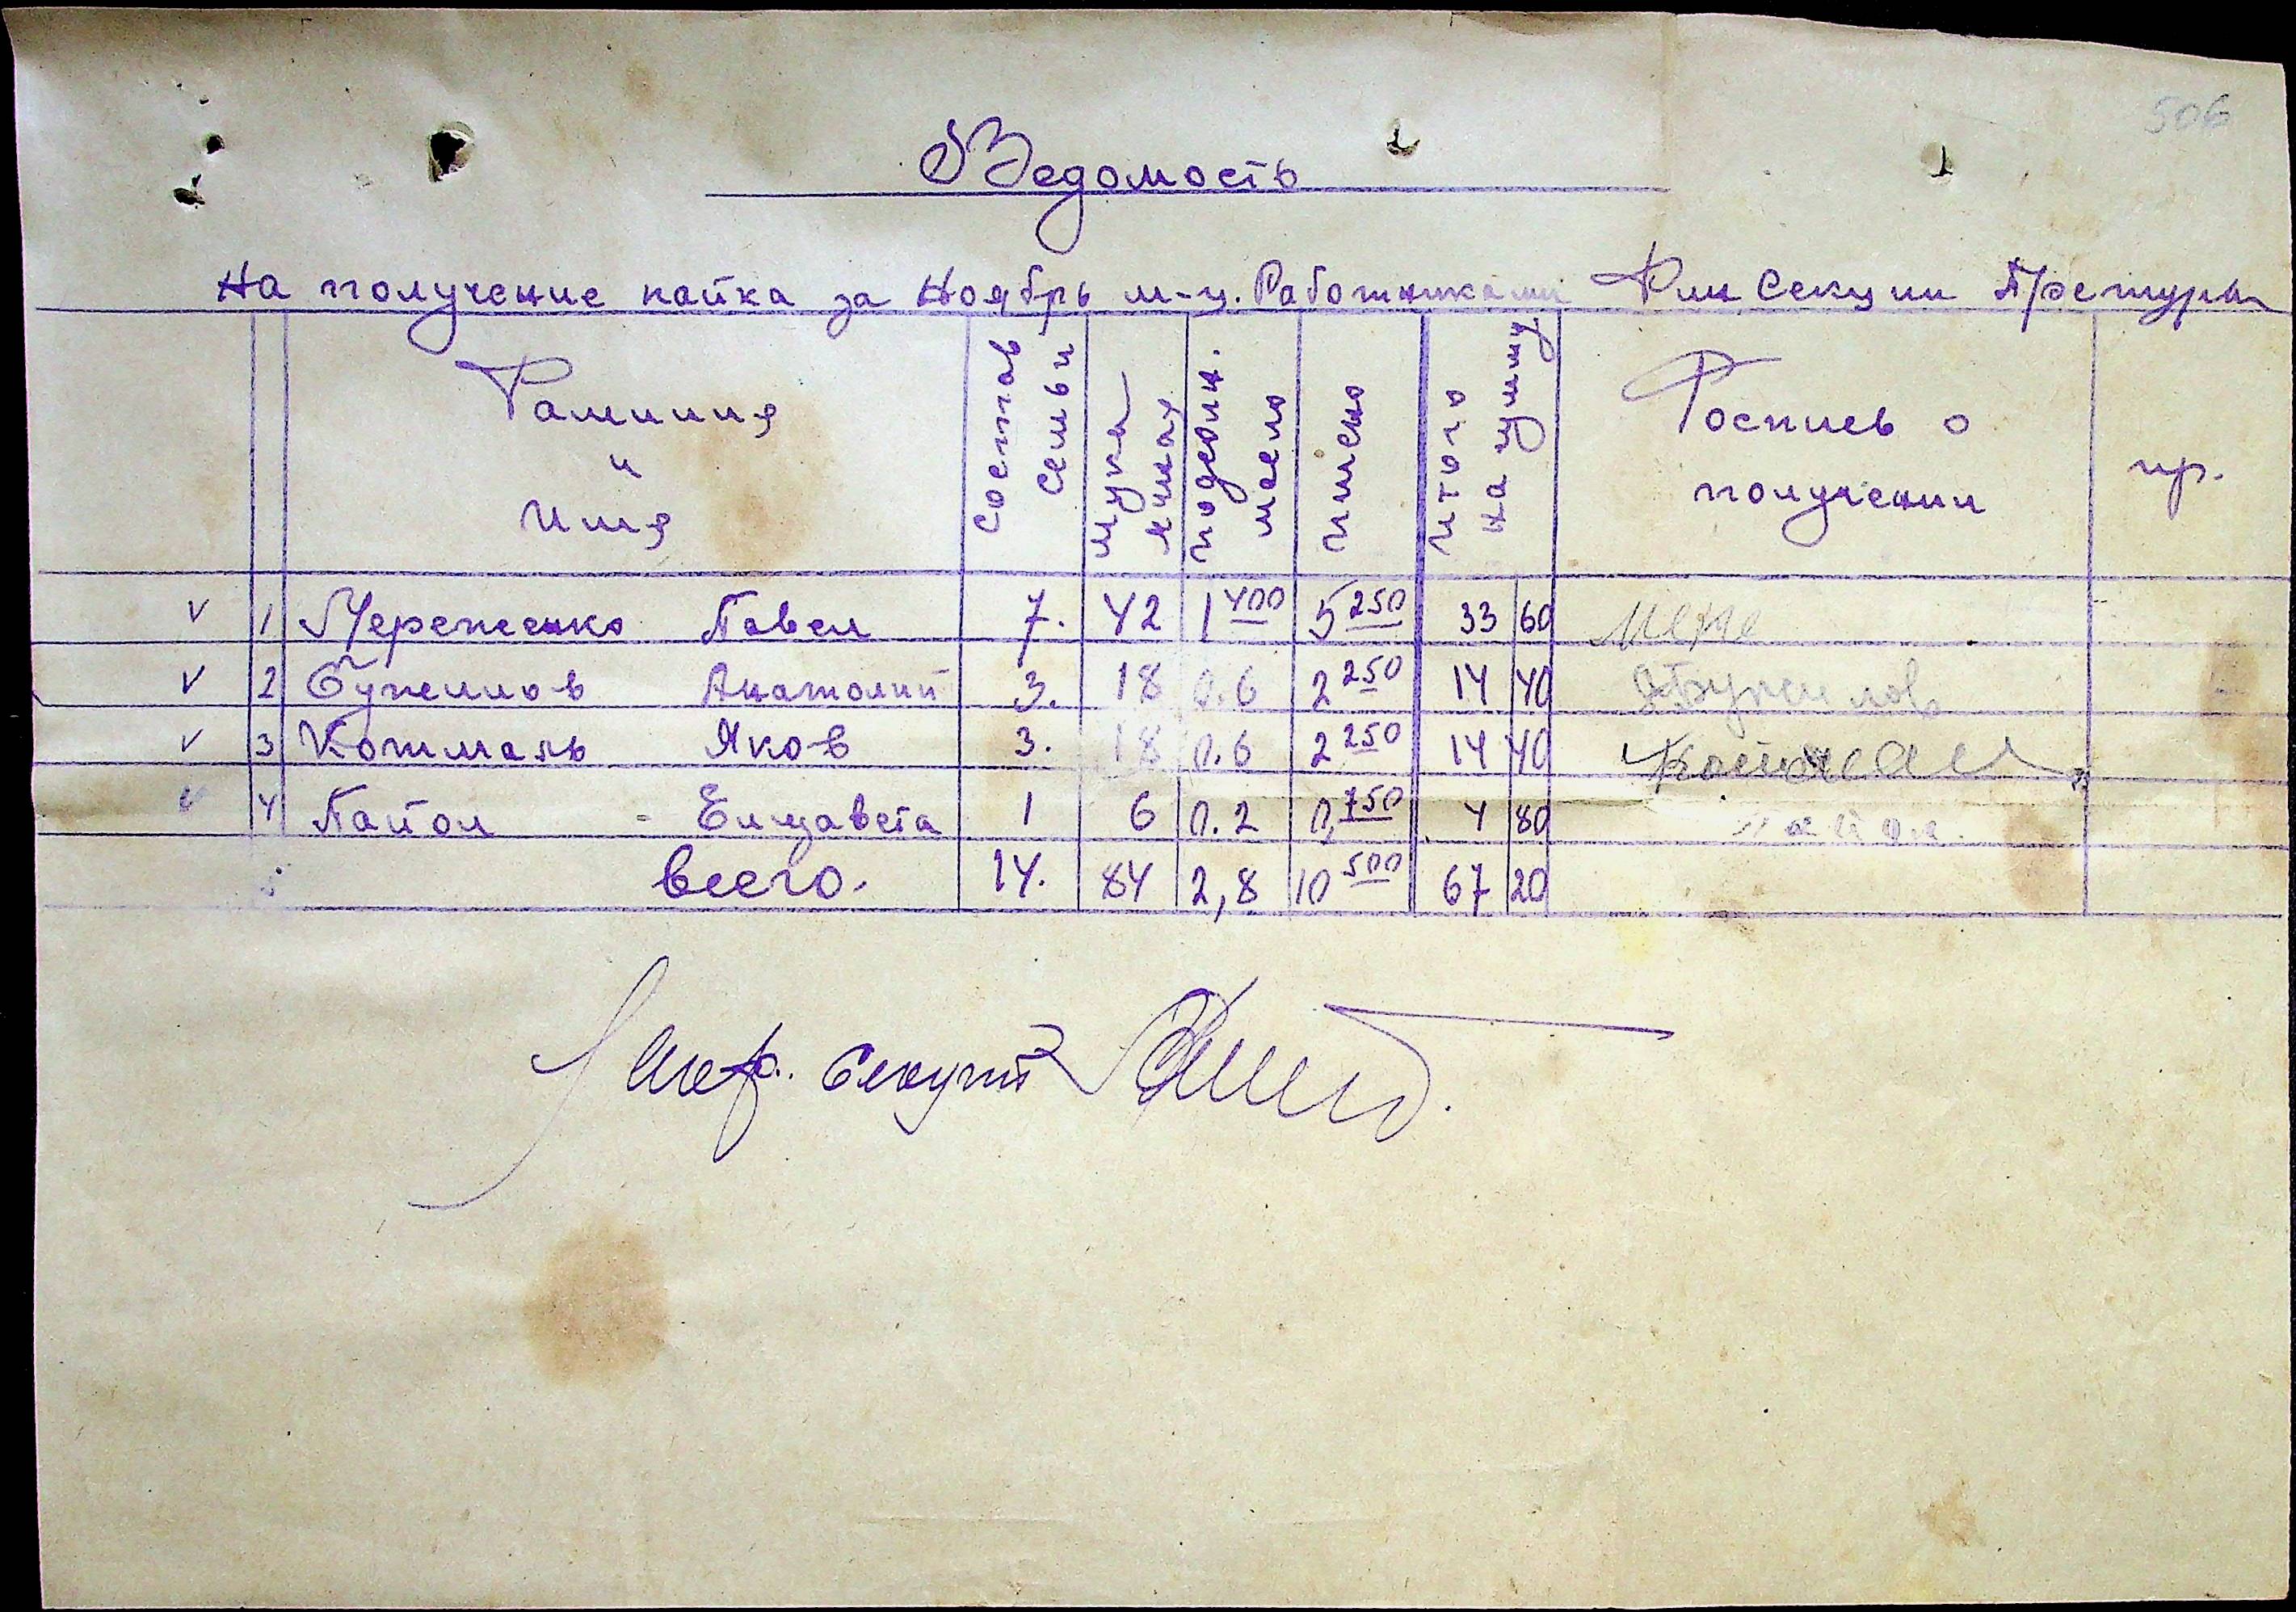 506
Ведомость
На получение пайка за Ноябрь м-ц. Работниками Фин Секции Претуры
Фамилия и Имя | Состав Семьи | мука ячная | подсолн. масло | пшено | итого на сумму | Роспись о получении | пр.
V 1 Мереженко Павел 7. 42 1 400 5 250 33 60 Мере
V 2 Бужемлов Анатолий 3. 18 0.6 2 250 14 40
V 3 Котмаль Яков 3. 18 0.6 2 250 14 40 Котмаль
V 4 Пайол - Елизавета 1 6 0.2 0,750 4 80 Пайол.
Всего. 14. 84 2,8 10 500 67 20
Шеф. Секции